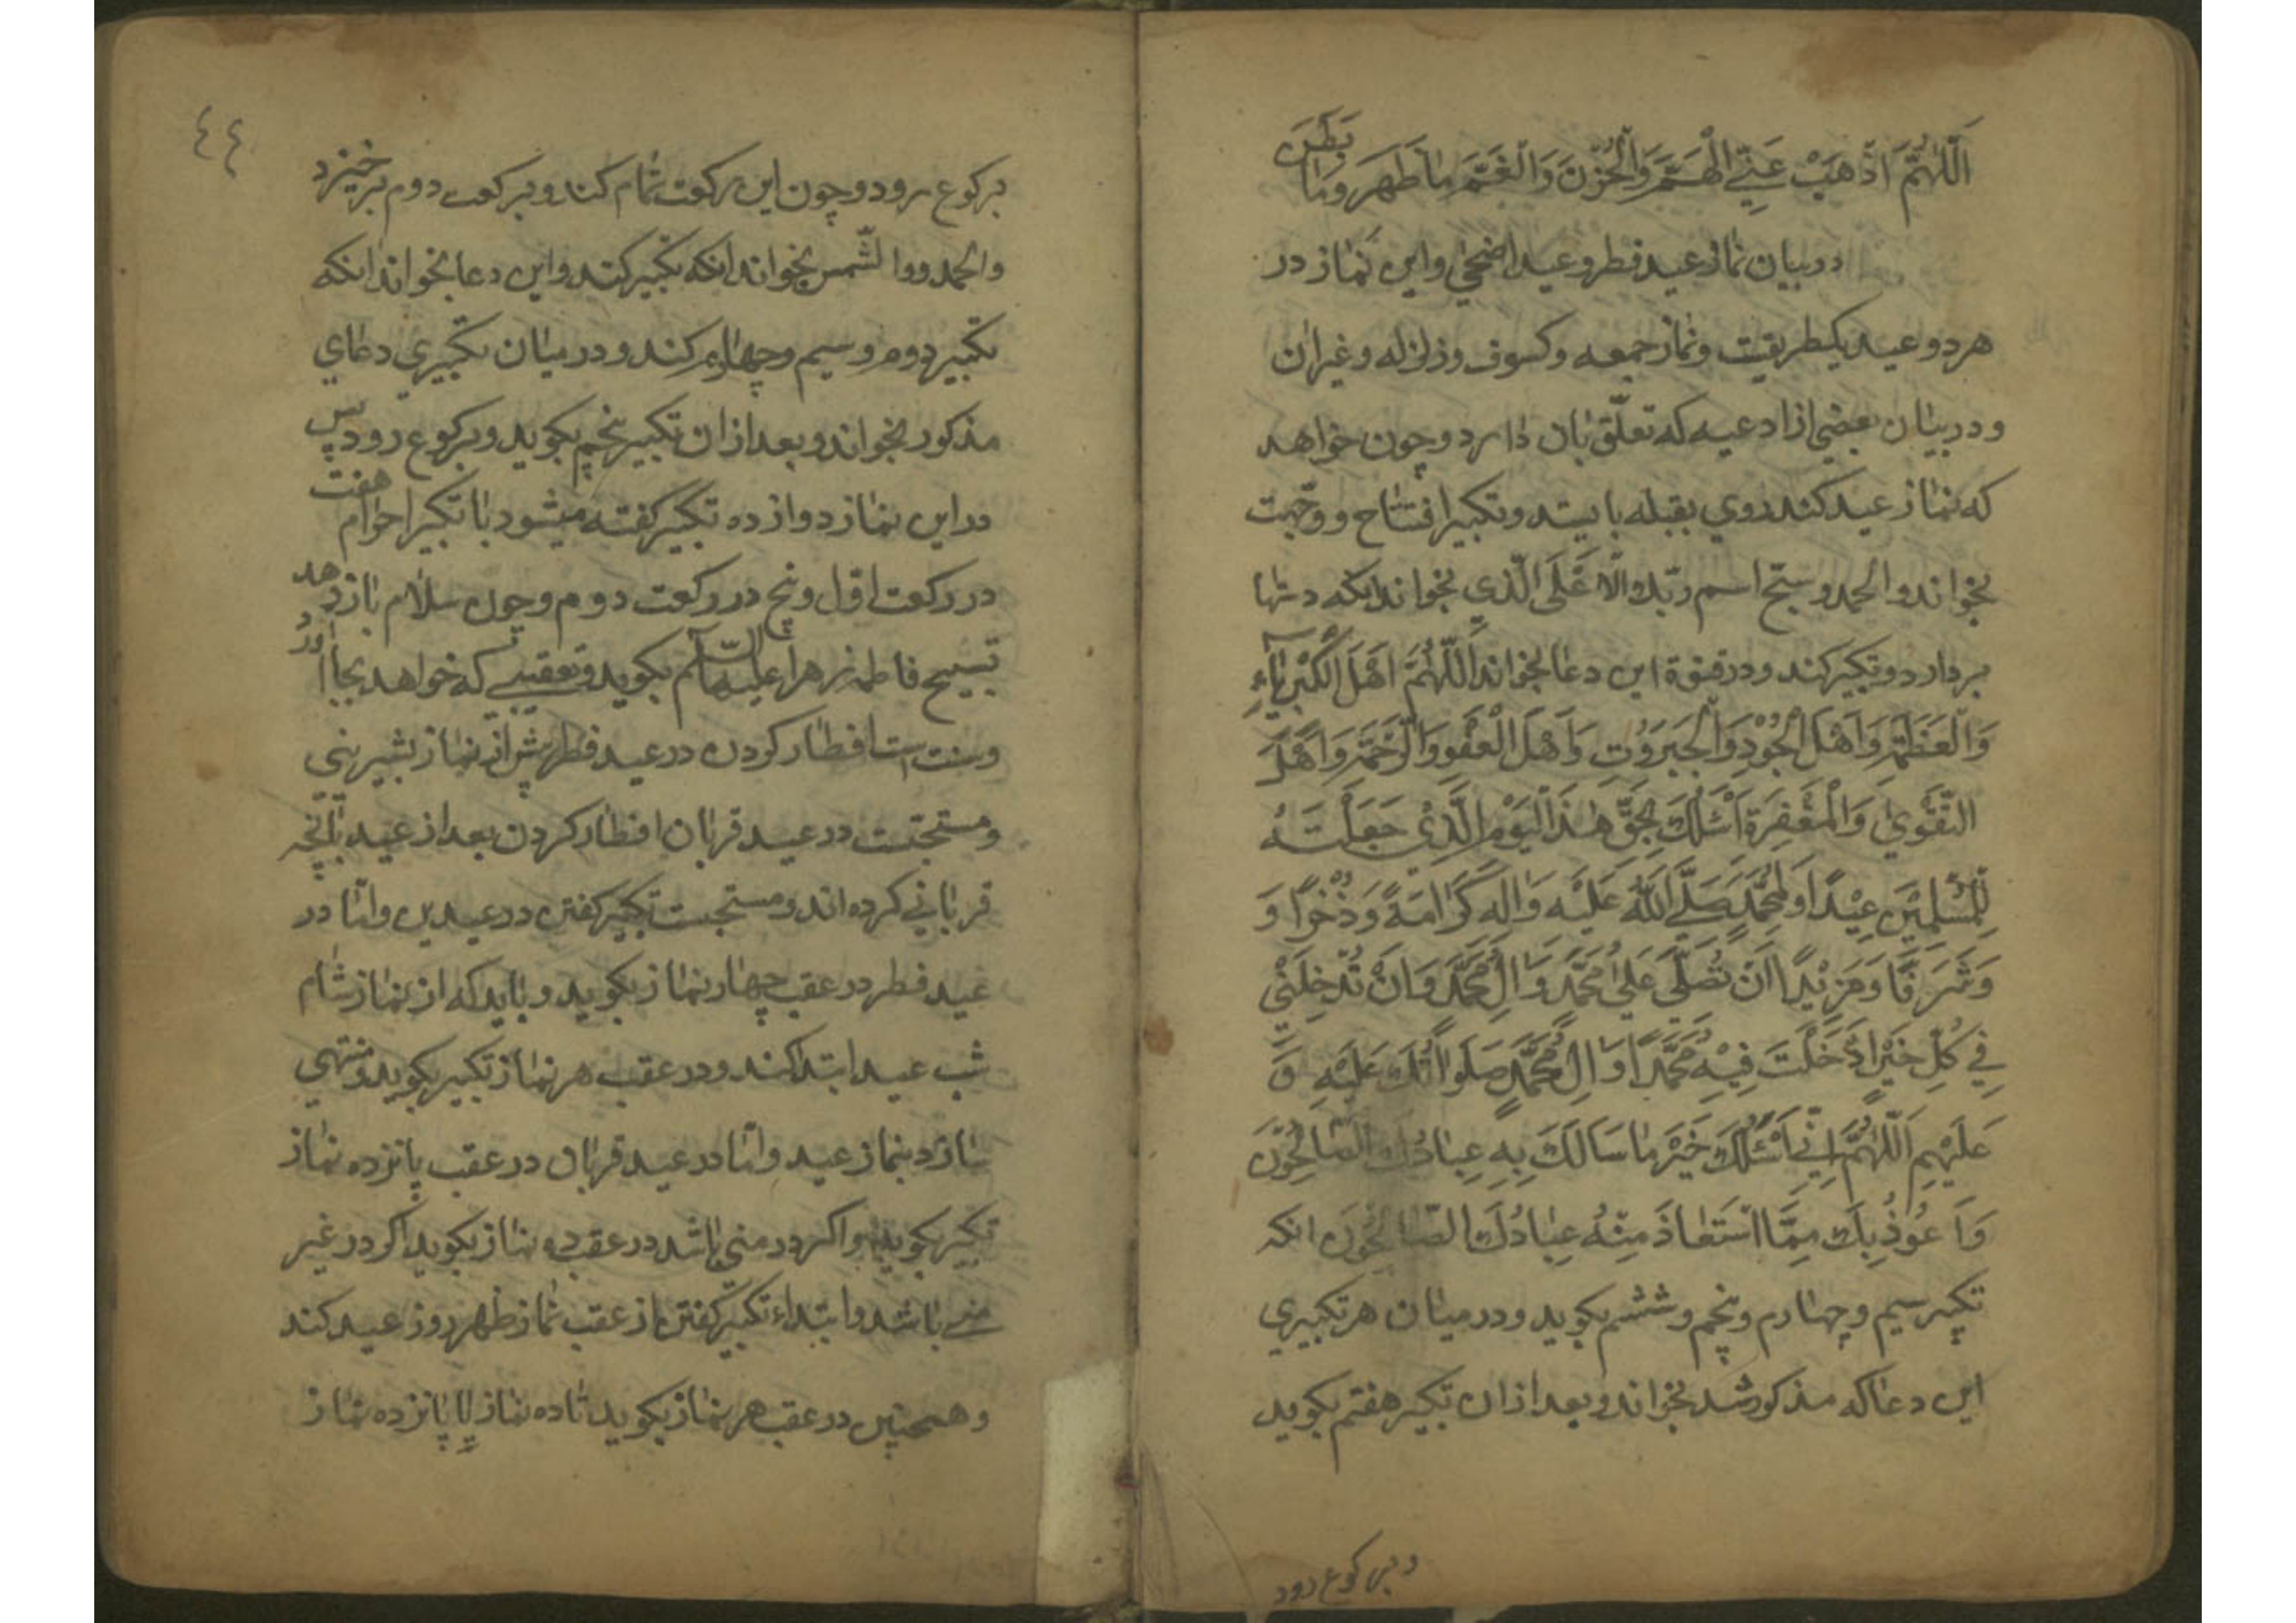 اَللّهُمَّ اَذْهِبْ عَنِّي الْهَمَّ وَالْحُزْنَ وَالْغَمَّ مٰا ظَهَرَ وَمٰا بَطَنَ
در بیان نماز عید فطر و عید اضحی و این نماز در
هر دو عید یکطریقست و نماز جمعه و کسوف و زلزله و غیران
و در بیان بعضی از ادعیه که تعلّق بان دارد و چون خواهد
که نماز عید کند روی بقبله بایستد و تکبیر افتتاح و وجّهت
بخواند و الحمد و سبّح اسم ربّك الْاَعْلَى الَّذي بخواند انکه دستها
بردارد و تکبیر کند و در قنوة این دعا بخواند اَللّهُمَّ اَهْلَ الْكِبْرِيٰاءِ
وَالْعَظَمَةِ وَاَهْلَ الْجُوْدِ وَالْجَبَرُوْتِ وَاَهْلَ الْعَفْوِ وَالرَّحْمَةِ وَاَهْلَ
التَّقْوٰي وَالْمَغْفِرَةِ اَسْئَلُكَ بِحَقِّ هٰذَا الْيَوْمِ الَّذِيْ جَعَلْتَهُ
لِلْمُسْلِمِيْنَ عِيْدًا وَلِمُحَمَّدٍ صَلَّي اللّهُ عَلَيْهِ وَاٰلِهِ كَرَامَةً وَذُخْرًا وَ
وَشَرَفًا وَمَزِيْدًا اَنْ تُصَلِّيَ عَلٰي مُحَمَّدٍ وَاٰلِ مُحَمَّدٍ وَاَنْ تُدْخِلَنِيْ
فِي كُلِّ خَيْرٍ اَدْخَلْتَ فِيْهِ مُحَمَّدًا وَاٰلَ مُحَمَّدٍ صَلَوٰاتُكَ عَلَيْهِ وَ
عَلَيْهِم اَللّهُمَّ اِنِّي اَسْئَلُكَ خَيْرَ مٰا سَالَكَ بِهِ عِبٰادُكَ الصّٰالِحُوْنَ
وَاَعُوْذُ بِكَ مِمَّا اسْتَعٰاذَ مِنْهُ عِبٰادُكَ الصّٰالِحُوْنَ انکه
تکبیر سیم و چهارم و پنجم و ششم بکوید و در میان هر تکبیری
این دعا که مذکور شد بخواند و بعد از ان تکبیر هفتم بکوید
و برکوع رود
٤٤
برکوع رود و چون این رکعت تمام کند و برکعت دوم برخیزد
والحمد ووالشّمس بخواند انکه تکبیر کند و این دعا بخواند انکه
تکبیر دوم و سیم و چهارم کند و در میان تکبیری دعای
مذکور بخواند و بعد از ان تکبیر پنجم بکوید و برکوع رود پس
در این نماز دوازده تکبیر کفته میشود با تکبیر احرام هفت
در رکعت اوّل و پنج در رکعت دوم و چون سلام باز دهد
تسبیح فاطمه زهرا علیها السّلام بکوید و تعقیبی که خواهد بجا اورد
و سنت است افطار کردن در عید فطر پیش از نماز بشیرینی
و مستحبّست در عید قربان افطار کردن بعد از عید بانچه
قربانی کرده اند و مستحبست تکبیر کفتن در عیدین و امّا در
عید فطر در عقب چهار نماز بکوید و باید که از نماز شام
شب عید ابتدا کند و در عقب هر نماز تکبیر بکوید و منتهی
سازد بنماز عید و امّا در عید قربان در عقب پانزده نماز
تکبیر بکوید و اکر در منی باشد در عقب ده نماز بکوید اکر در غیر
منی باشد و ابتداء تکبیر کفتن از عقب نماز ظهر روز عید کند
و همچنین در عقب هر نماز بکوید تا ده نماز یا پانزده نماز